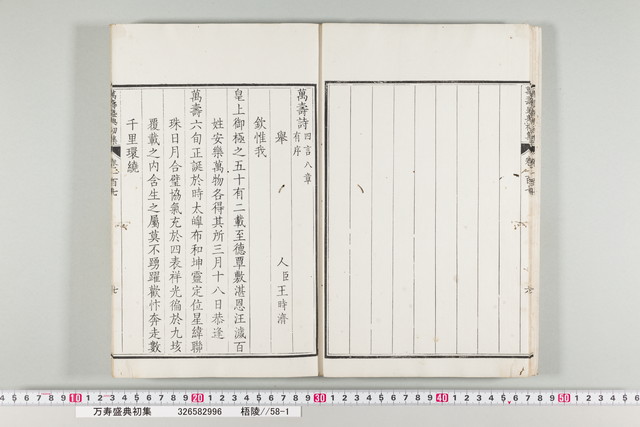 萬壽詩四言八章
有序
舉人臣王時濟
欽惟我
皇上御極之五十有二載至德覃敷湛恩汪濊百
姓安樂萬物各得其所三月十八日恭逢
萬壽六旬正誕於時太皞布和坤靈定位星緯聯
珠日月合璧協氣充於四表祥光徧於九垓
覆載之內含生之屬莫不踴躍歡忭奔走數
千里環繞
万寿盛典初集 326582996 梧陵//58-1